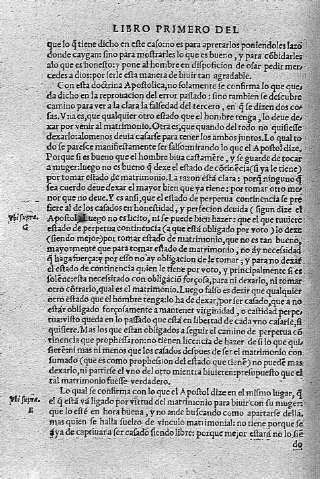 LIBRO PRIMERO DEL
que lo q̃ tiene dicho en este caso: no es para apretarlos poniendoles lazo
donde caygan: sino para mostrarles lo que es bueno, y para cõbidarles
a lo que es honesto: y pone al hombre en disposicion de osar pedir mer-
cedes a dios: por serle esta manera de biuir tan agradable.
Con esta doctrina Apostolica, no solamente se confirma lo que que-
da dicho en la reprouacion del error passado: sino tambien se descubre
camino para ver a la clara la falsedad del tercero, en q̃ se dizen dos co-
sas. Vna es, que qualquier otro estado que el hombre tenga, lo deue de-
xar por venir al matrimonio. Otra es, que quando del todo no quisiesse
dexarlo: alomenos deuia casarse para tener los ambos juntos. Lo qual to-
do se paresce manifiestamente ser falso: mirando lo que el Apostol dize.
Porque si es bueno que el hombre biua castamẽte, y se guarde de tocar
a muger: luego no es bueno q̃ dexe el estado de cõtinẽcia (si ya le tiene)
por tomar estado de matrimonio. La razon está clara: porq̃ ninguno q̃
sea cuerdo deue dexar el mayor bien que ya tiene: por tomar otro me-
nor que no deue. Y es ansi, que el estado de perpetua continencia se pre-
fiere al de los casados en honestidad, y perfecion deuida (segun dize el
Apostol) luego no es licito, ni se puede bien hazer: que el que tuuiere
Vbi supra.
G
estado de perpetua continẽcia (a que está obligado por voto) lo dexe
(siendo mejor) por tomar estado de matrimonio, que no es tan bueno,
mayormente que para tomar estado de matrimonio, no ay necessidad
q̃ haga fuerça: y por esso no ay obligacion de le tomar; y para no dexar
el estado de continencia quien le tiene por voto, y principalmente si es
solẽne: está necessitado con obligaciõ forçosa, para ni dexarlo, ni tomar
otro cõtrario, qual es el matrimonio. Luego falso es dezir que qualquier
otro estado que el hombre tenga: lo ha de dexar, por ser casado, que a no
estar obligado forçosamente a mantener virginidad, o castidad perpe-
tua: visto queda en lo passado que está en libertad de cada vno casarse, si
quisiere. Mas los que estan obligados a seguir el camino de perpetua cõ
tinencia que prophessaron: no tienen licencia de hazer de si lo que qui-
sierẽ: ni mas ni menos que los casados despues de ser el matrimonio con
sumado (que es como prophession del estado que tienẽ) no puedẽ mas
dexarlo, ni partirse el vno del otro mientra biuieren: presupuesto que el
tal matrimonio fuesse verdadero.
Lo qual se confirma con lo que el Apostol dize en el mismo lugar, q̃
Vbi supra.
E
el q̃ está ya ligado por virtud del matrimonio para biuir con su muger:
que lo esté en hora buena, y no ande buscando como apartarse della,
mas quien se halla suelto de vinculo matrimonial: no tiene porque se
aya de captiuar a ser casado siendo libre: porque mejor estará no lo siẽ
do